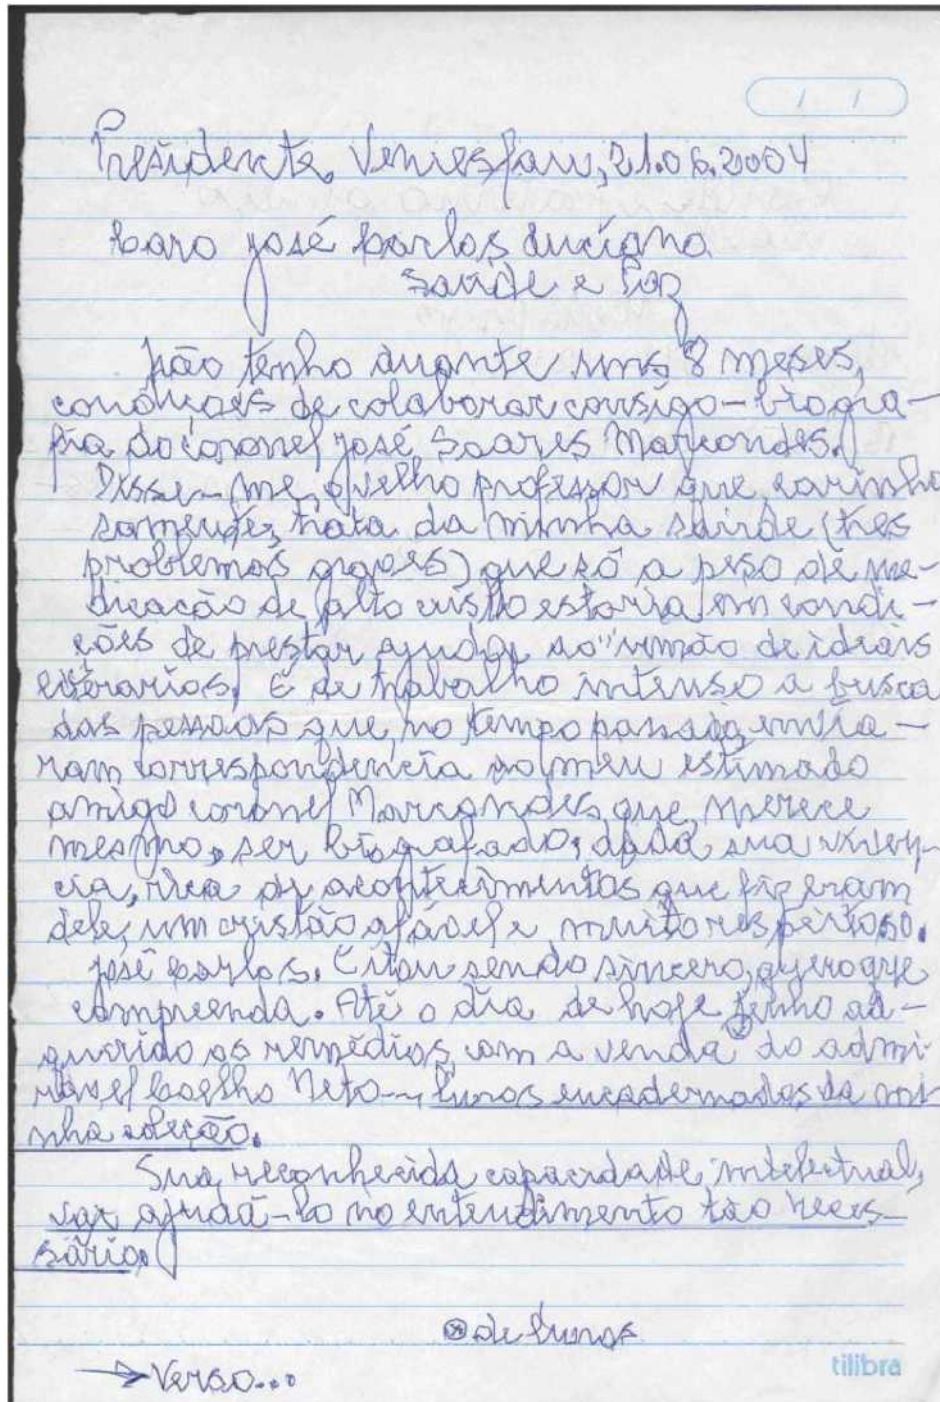 / /
Presidente Venceslau, 21.06.2004
Caro José Carlos Luciano
Saúde e Paz
Não tenho durante uns 8 meses,
condições de colaborar consigo - biogra-
fia do coronel José Soares Marcondes.
Disse-me, o velho professor que, carinho
samente, trata da minha saúde (tres
problemas graves) que só a peso de me-
dicação de alto custo estaria em condi-
ções de prestar ajuda, ao "irmão de ideais
literarios. É de trabalho intenso a busca
das pessoas que, no tempo passado, envia-
ram correspondência ao meu estimado
amigo coronel Marcondes, que, merece
mesmo, ser biografado, dada sua vivên-
cia, rica de acontecimentos que fizeram
dele, um cristão afável e muito respeitoso.
José Carlos. Estou sendo sincero, quero que
compreenda. Até o dia de hoje tenho ad-
quirido os remédios, com a venda do admi-
rável Coelho Neto -- livros encadernados da mi-
nha coleção.
Sua, reconhecida capacidade, intelectual,
vai ajudá-lo no entendimento tão neces-
sário.
⊗ de livros
→ Verso...
tilibra